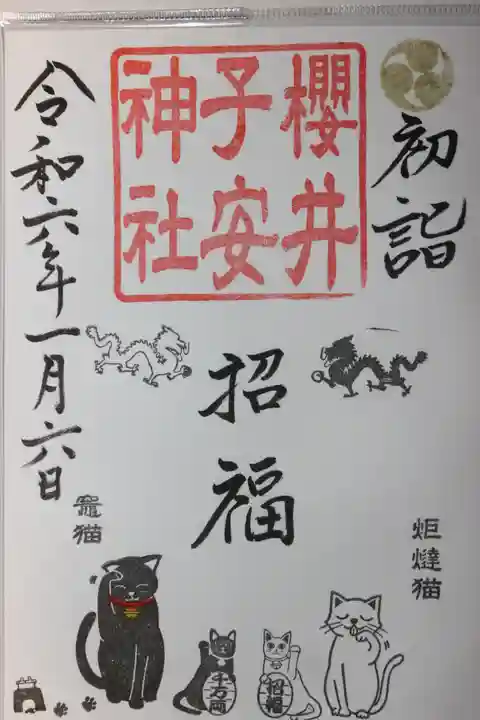 初詣
櫻井
子安
神社
招福
令和六年一月六日
炬燵猫
竈猫
千万両
招福